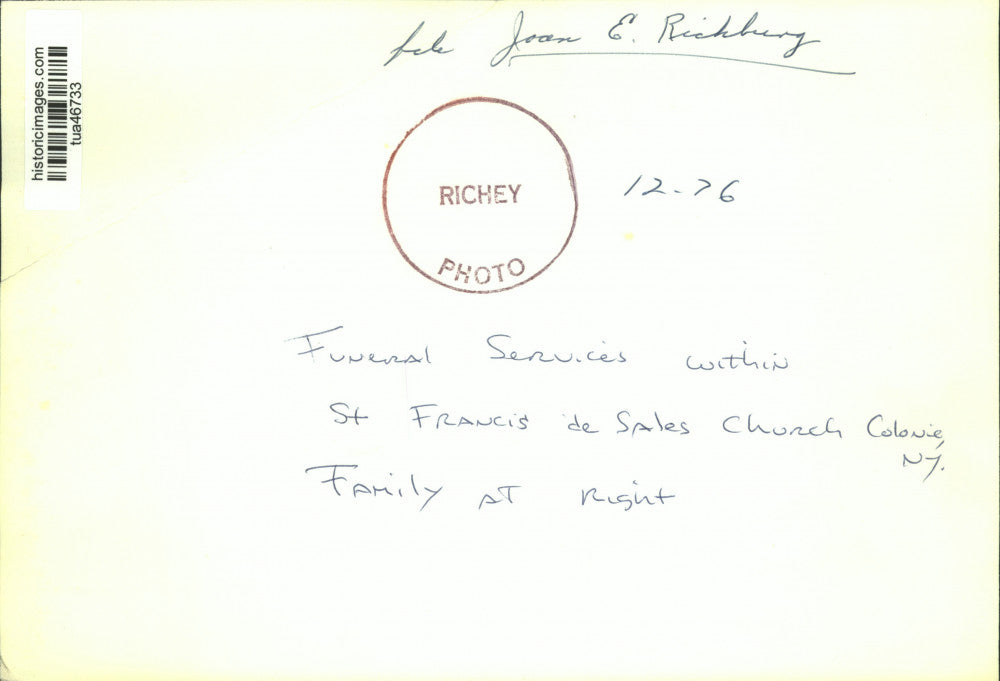 historicimages.com
tua46733
file Joan E. Richburg
RICHEY
PHOTO
12-76
Funeral Services within
St Francis de Sales Church Colonie,
NY.
Family at Right